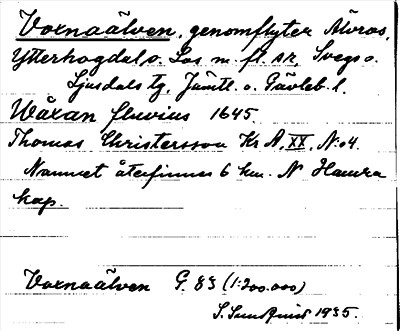 Voxnaälven, genomflyter Älvros,
Ytterhogdal o. Los m. fl. sn, Svegs o.
Ljusdals tg, Jämtl. o. Gävleb. l.
Wåxan fluvius 1645.
Thomas Christersson Kr A, XX, No 4.
Namnet återfinnes 6 km. N Hamra
kap.
Voxnaälven G. 83 (1:200.000)
S. Sundquist 1935.